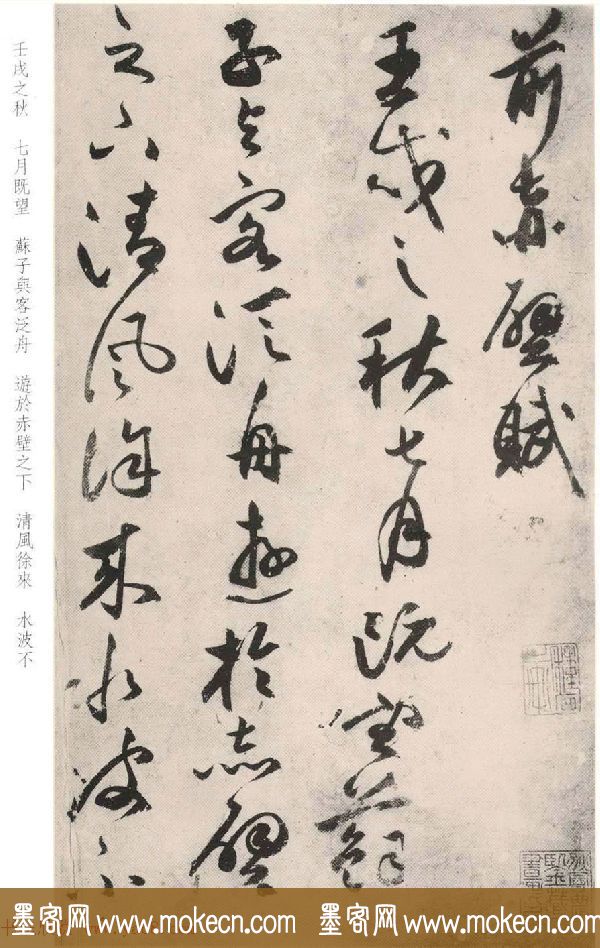 前赤壁賦
壬戌之秋七月既望蘇
子與客泛舟遊於赤壁
之下清風徐來水波不
壬戌之秋 七月既望 蘇子與客泛舟 遊於赤壁之下 清風徐來 水波不
墨客网 www.mokecn.com 墨客网 www.mokecn.com